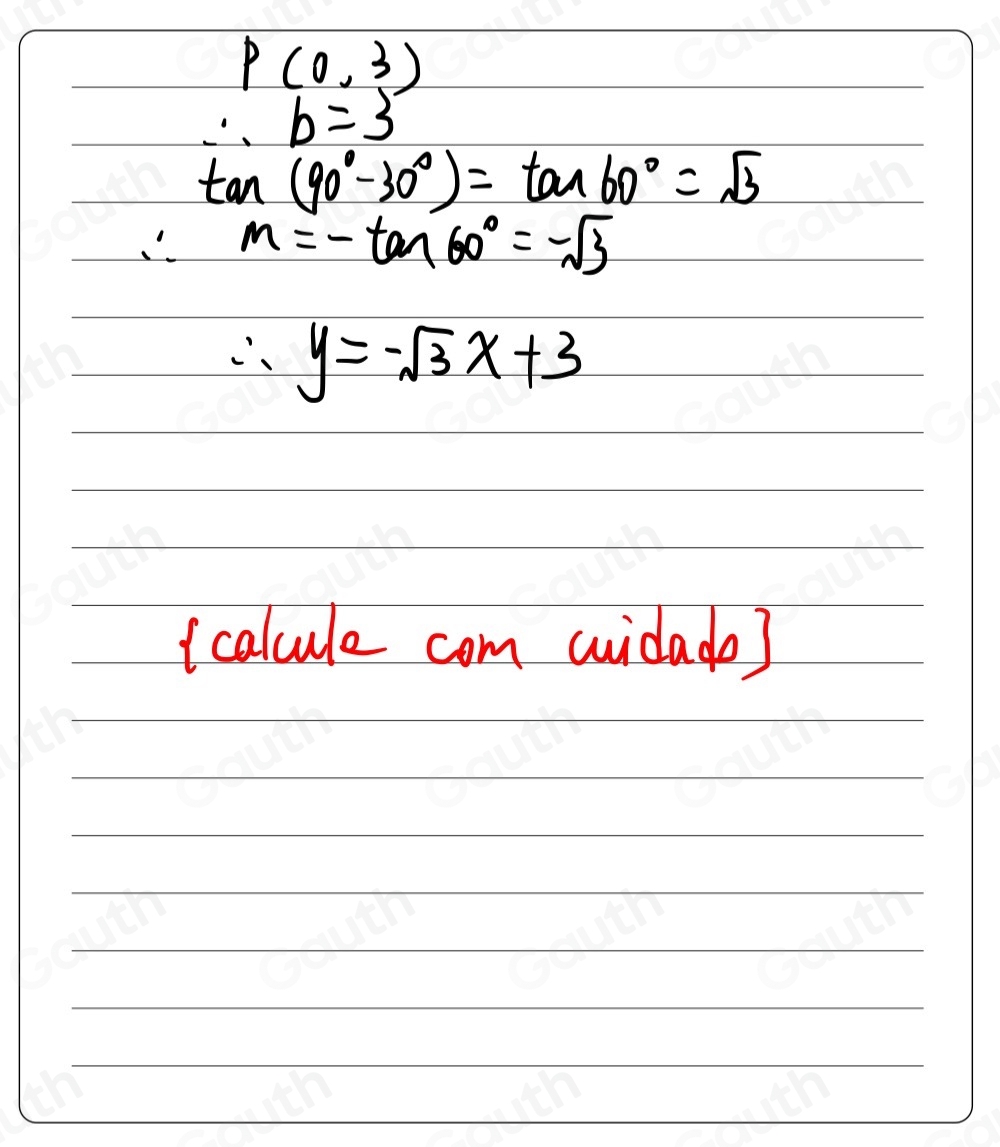 P(0,3)
∴ b=3
tan (90°-30°)= tan 60° = √3
∴ m=-tan 60° = -√3
∴ y=-√3x+3
{calcule com cuidado]
Gauth